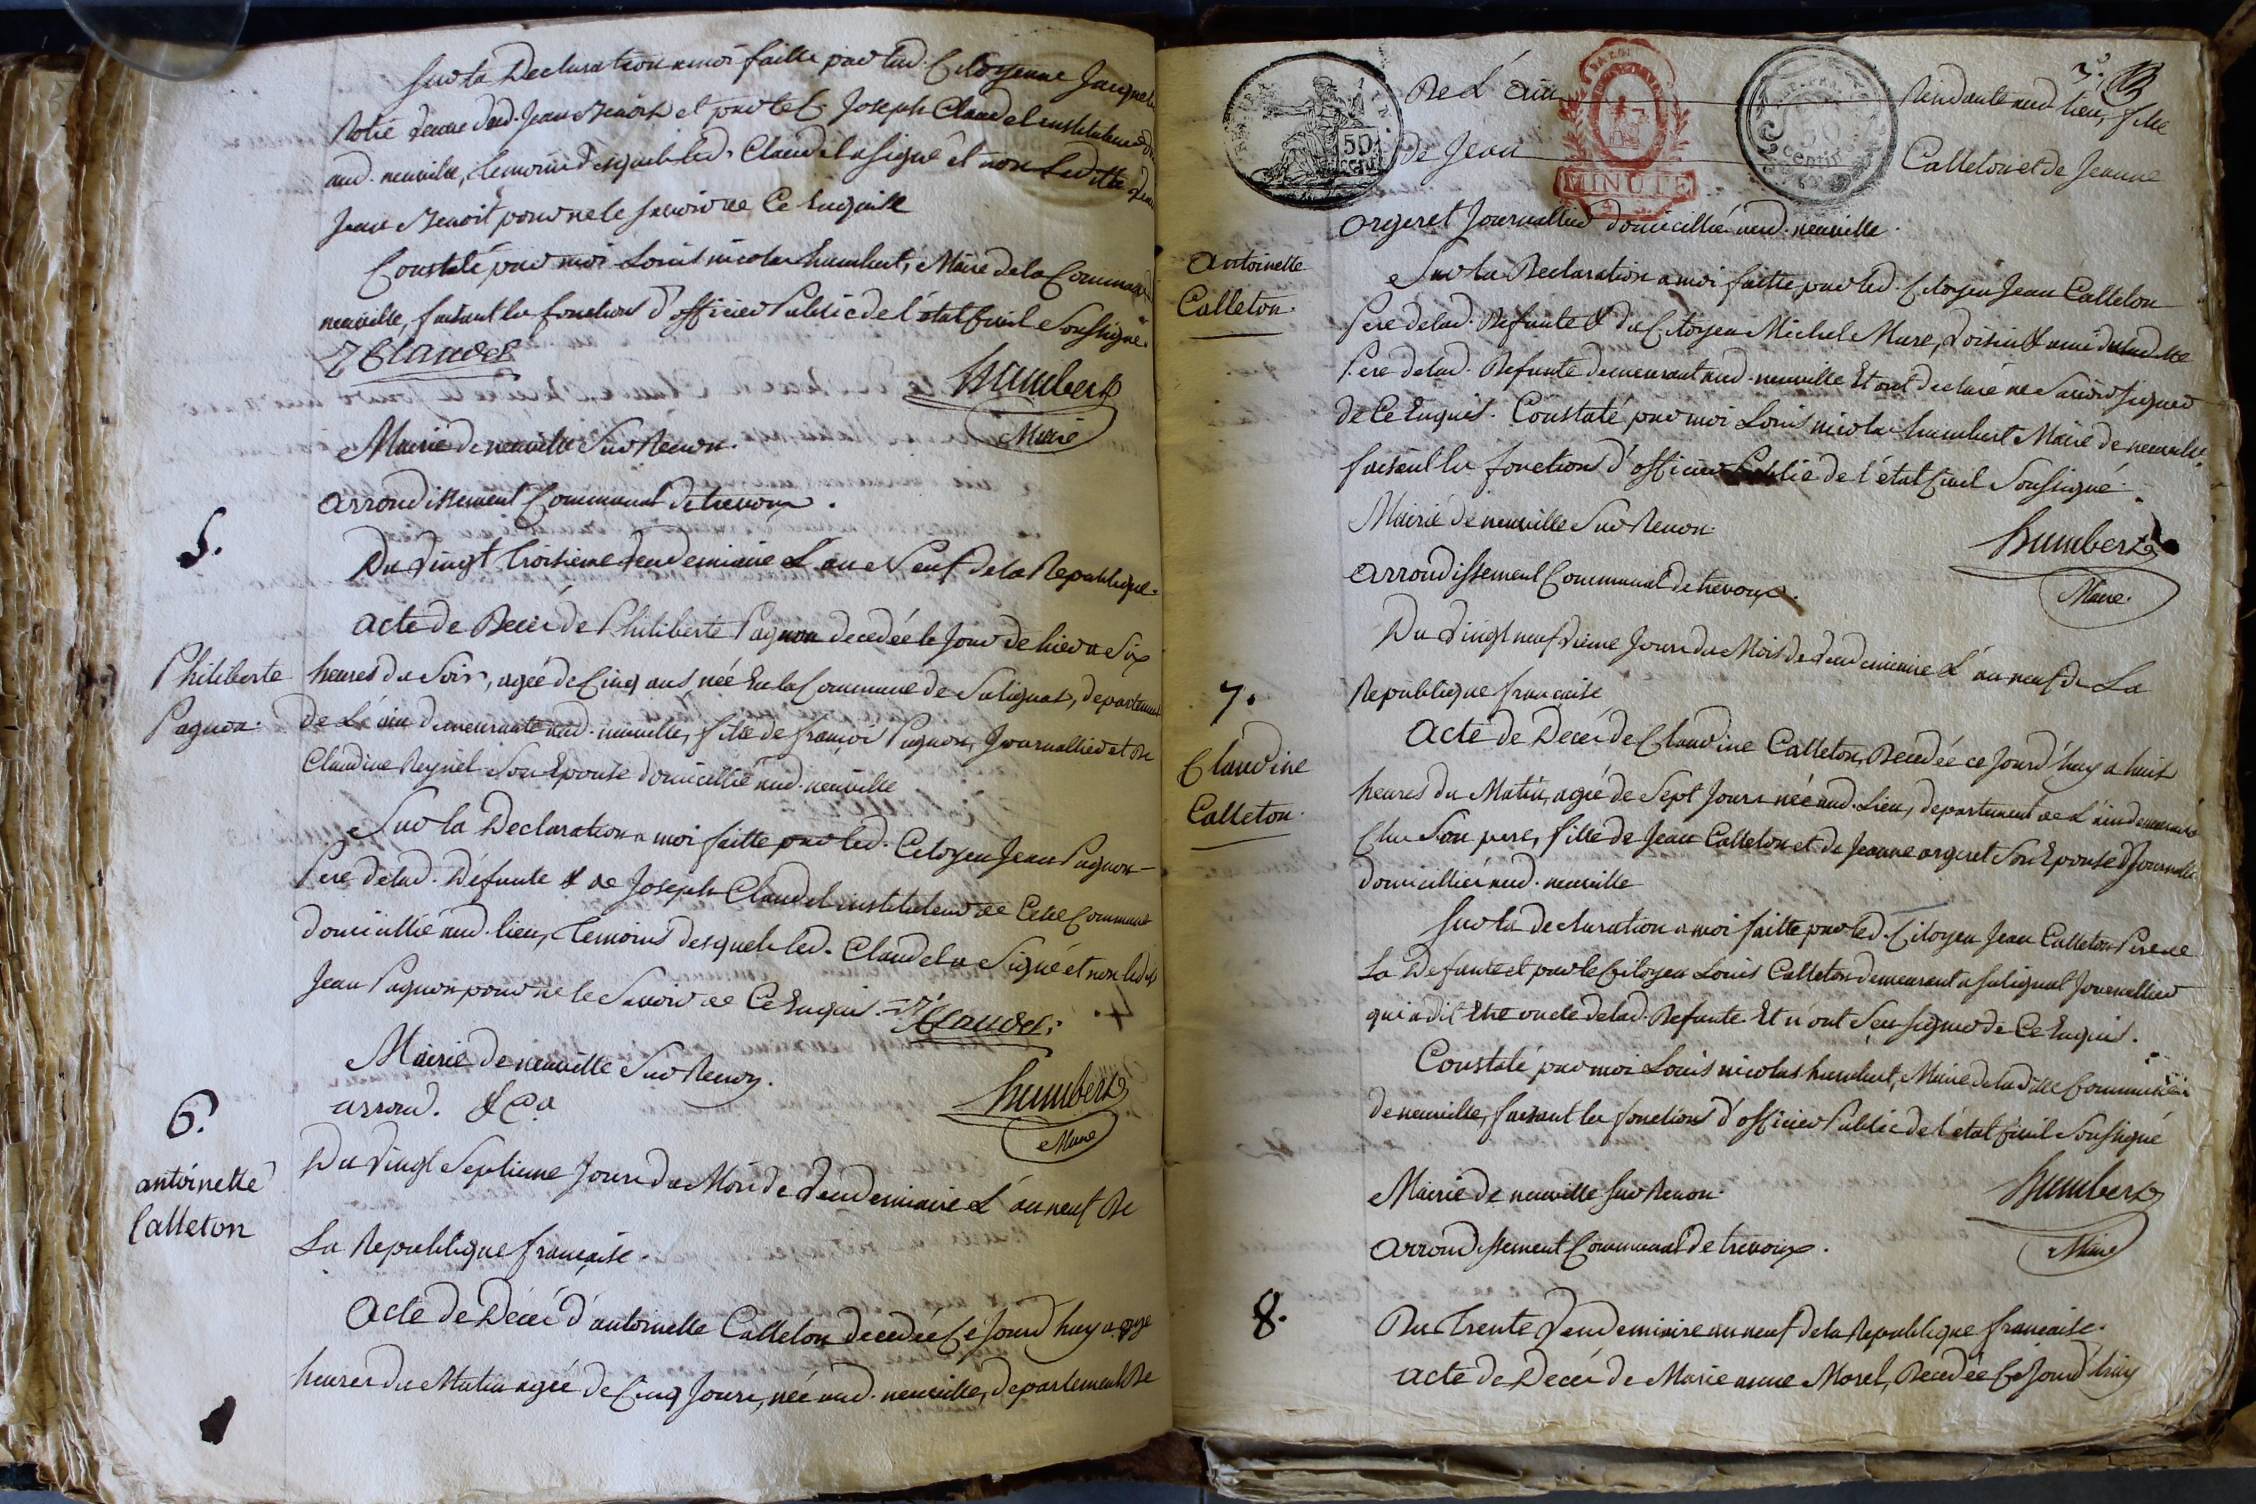 Sur la Declaration a moi faitte par lad. Citoyenne Jacque
veuve dud. Jean Benoit et par le C. Joseph Claudel instituteur
aud. neuville, temoins desquels led. Claudel a signé et non Laditte
Jean Benoit pour ne le savoir de Ce Enquise
Constaté par moi Louis nicolas humbert, Maire de la Commune
neuville, faisant les fonctions d'officier Public de l'état Civil Soussigné.
J Claudel
humbert
Maire
Mairie de neuville Sur Renon.
arrondissement Communal de trevoux.
5.
Du vingt troisieme vendemiaire L'an Neuf de la Republique.
Philiberte
Pagnon.
acte de Décès de Philiberte Pagnon decedée le Jour de hier a Six
heures du Soir, agée de Cinq ans née En la Commune de Sulignat, departement
de L'ain demeurante aud. neuville, fille de françois Pagnon, Journallier et De
Claudine Reynel Son Epouse domicillié aud. neuville
Sur la Declaration a moi faitte par led. Citoyen Jean Pagnon
Pere delad. Défunte & de Joseph Claudel instituteur de Cette Commune
domicillié aud. lieu, temoins desquels led. Claudel a Signé et non led.
Jean Pagnon pour ne le Savoir de Ce Enquis. J Claudel
Mairie de neuville Sur Renon.
arrond. &a
humbert
Maire
6.
antoinette
Calleton
Du vingt Septieme Jour du Mois de Vendemiaire L'an neuf De
La Republique francaise.
acte de Décès d'antoinette Calleton decedée Ce Jourd'huy a onze
heures du Matin agée de Cinq Jours, née aud. neuville, departement De
3.
DE L'AIN.
50
CENT
MINUTE
50
centim
De L'ain Rendante aud lieu, fille
de Jean Calleton et de Jeanne
orgeret Journallier domicillié aud. neuville.
antoinette
Calleton.
Sur la Declaration a moi faitte par led. Citoyen Jean Calleton
Pere delad. Défunte & du Citoyen Michel Mure, voisin & ami
Pere delad. Défunte demeurant aud. neuville Et ont declaré ne Savoir signer
de Ce Enquis. Constaté par moi Louis nicolas humbert Maire de neuville
faisant les fonctions d'officier Public de l'état Civil Soussigné.
humbert
Maire.
Mairie de neuville Sur Renon.
arrondissement Communal de trevoux.
Du vingt neufvieme Jour du Mois de vendemiaire L'an neuf de La
Republique francaise
7.
Claudine
Calleton.
acte de Decès de Claudine Calleton, Décedée ce Jourd'huy a huit
heures du Matin, agée de Sept Jours née aud. Lieu, departement de L'ain demeurant
Chez Son pere, fille de Jean Calleton et de Jeanne orgeret Son Epouse Journallier
domicilliés aud. neuville
Sur la declaration a moi faitte par led. Citoyen Jean Calleton Pere de
La Défunte et par le Citoyen Louis Calleton demeurant a Sulignat Journallier
qui a dit Etre oncle delad. Défunte. Et n'ont Seu signer de Ce Enquis.
Constaté par moi Louis nicolas humbert, Maire de laditte Commune
de neuville, faisant les fonctions d'officier Public de l'état Civil Soussigné
humbert
Maire
Mairie de neuville Sur Renon.
arrondissement Communal de trevoux.
8.
Du trente Vendemiaire an neuf de la Republique francaise.
acte de Decès de Marie anne Morel, Décedée Ce Jourd'huy